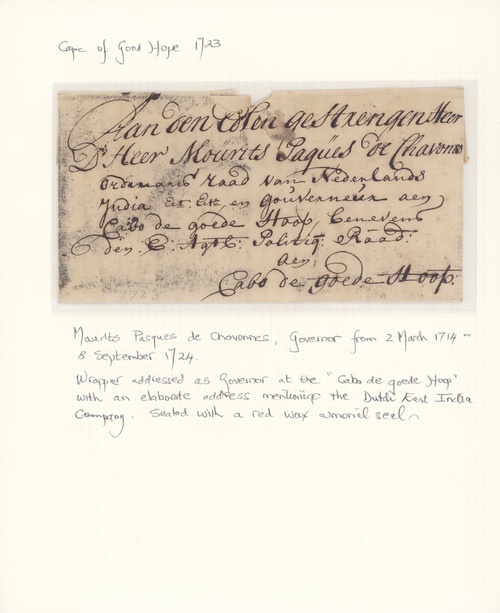 Cape of Good Hope 1723
Aan den Edlen gestrengen Heer
D' Heer Moürits Paqües de Chavonnes
Ordinaris raad van Nederlands
India Etc Etc en Goüverneür aen
Cabo de goede Hoop, benevens
den E: Agtb: Politiq Raad:
aen
Cabo de goede Hoop.
1723
Maurits Pasques de Chavonnes, Governor from 2 March 1714 –
8 September 1724.
Wrapper addressed as Governor at the "Cabo de goede Hoop"
with an elaborate address mentioning the Dutch East India
Company. Sealed with a red wax armorial seal.